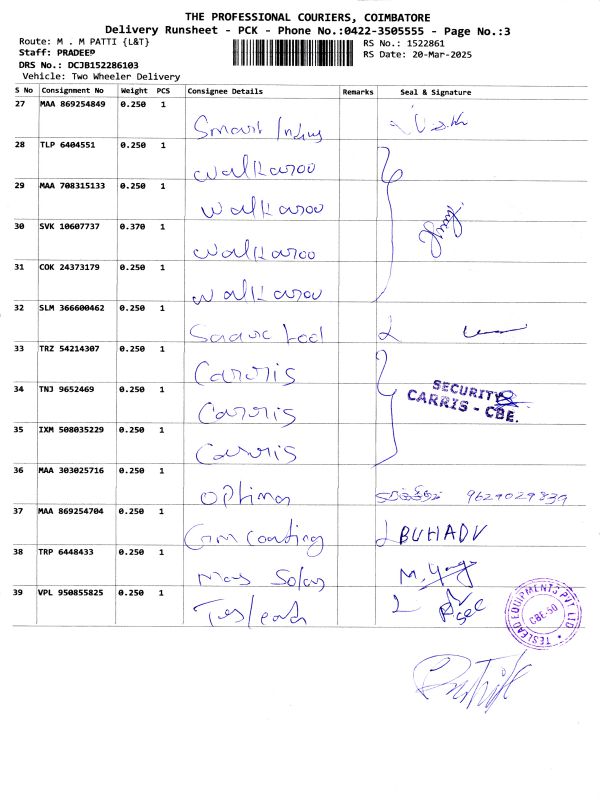 THE PROFESSIONAL COURIERS, COIMBATORE
Delivery Runsheet - PCK - Phone No.:0422-3505555 - Page No.:3
Route: M . M PATTI {L&T}
RS No.: 1522861
Staff: PRADEEP
RS Date: 20-Mar-2025
DRS No.: DCJB152286103
Vehicle: Two Wheeler Delivery
S No Consignment No Weight PCS Consignee Details Remarks Seal & Signature
27 MAA 869254849 0.250 1 Smart
28 TLP 6404551 0.250 1 Walkaroo
29 MAA 708315133 0.250 1 Walkaroo
30 SVK 10607737 0.370 1 Walkaroo
31 COK 24373179 0.250 1 Walkaroo
32 SLM 366600462 0.250 1
33 TRZ 54214307 0.250 1 Carris
34 TNJ 9652469 0.250 1 Carris
SECURITY
CARRIS - CBE.
35 IXM 508035229 0.250 1 Carris
36 MAA 303025716 0.250 1 Optima 9629029839
37 MAA 869254704 0.250 1 Gm Coating BUHADV
38 TRP 6448433 0.250 1 Mas Solar
39 VPL 950855825 0.250 1 Teslead
TESLEAD EQUIPMENTS PVT LTD
CBE-50